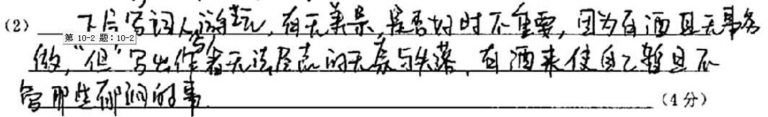 (2) 下片写词人游玩,有无美景,是否好时不重要,因为有酒且无事务
第 10-2 题:10-2
做,“但”写出作者无法尽志的无奈与失落,有酒来使自己暂且不
写那些郁闷的事 (4分)